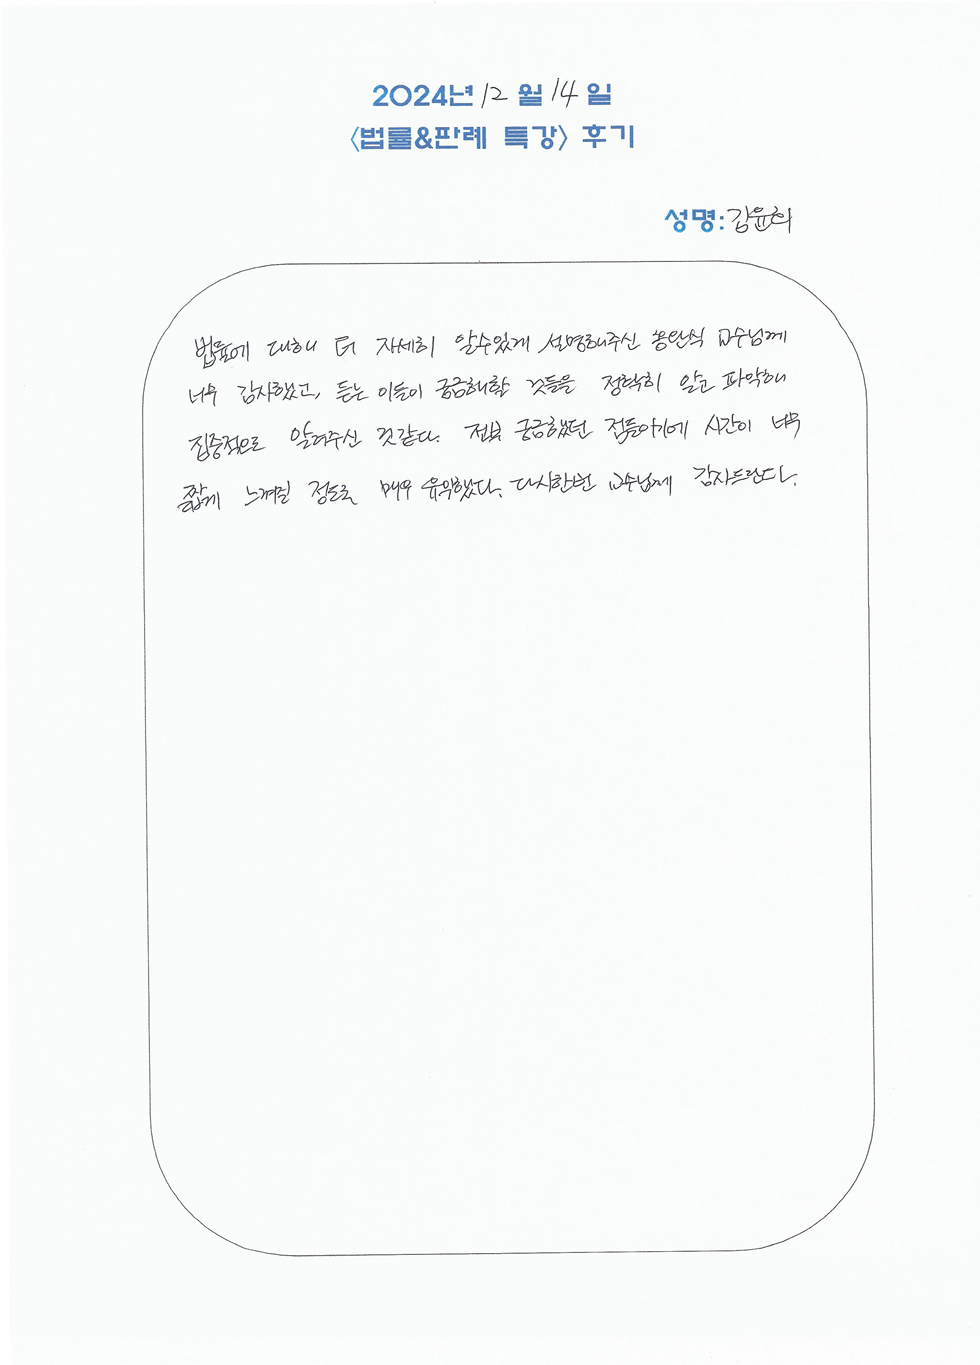 2024년 12월 14일
<법률&판례 특강> 후기
성명: 김윤희
법률에 대해 더 자세히 알수있게 설명해주신 송인식 교수님께
너무 감사했고, 듣는 이들이 궁금해할 것들을 정확히 알고 파악해
집중적으로 알려주신 것같다. 전부 궁금했던 점들이기에 시간이 너무
짧게 느껴질 정도로 매우 유익했다. 다시한번 교수님께 감사드린다.